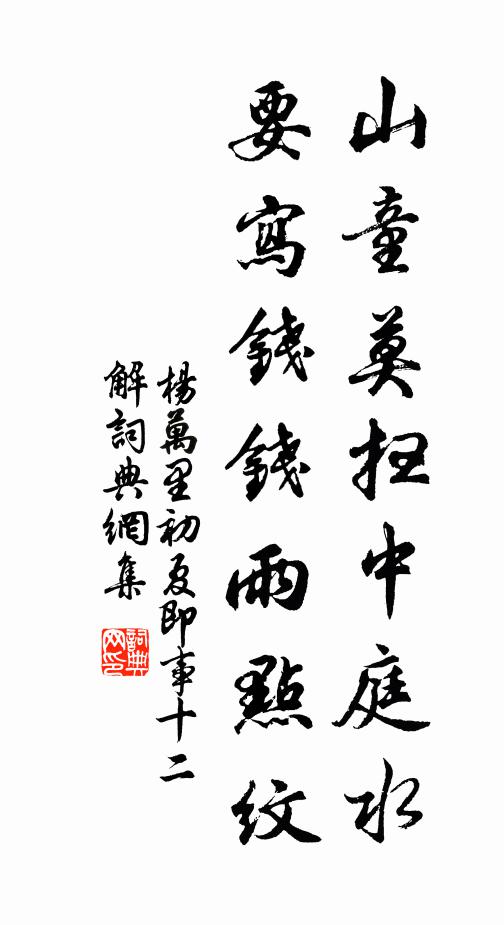 山童莫扫中庭水
要寫錢錢雨點紋
楊萬里初夏即事十二
解詞典網集
詞典网印